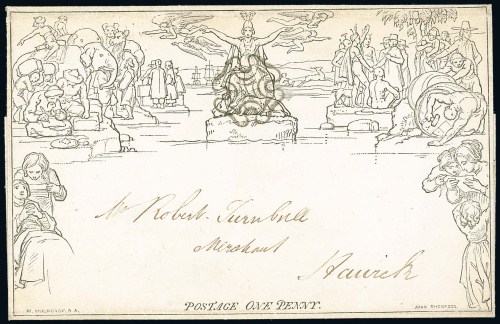 Mr Robert Turnbull
Merchant
Hawick
POSTAGE ONE PENNY.
W. MULREADY. R.A.
JOHN THOMPSON